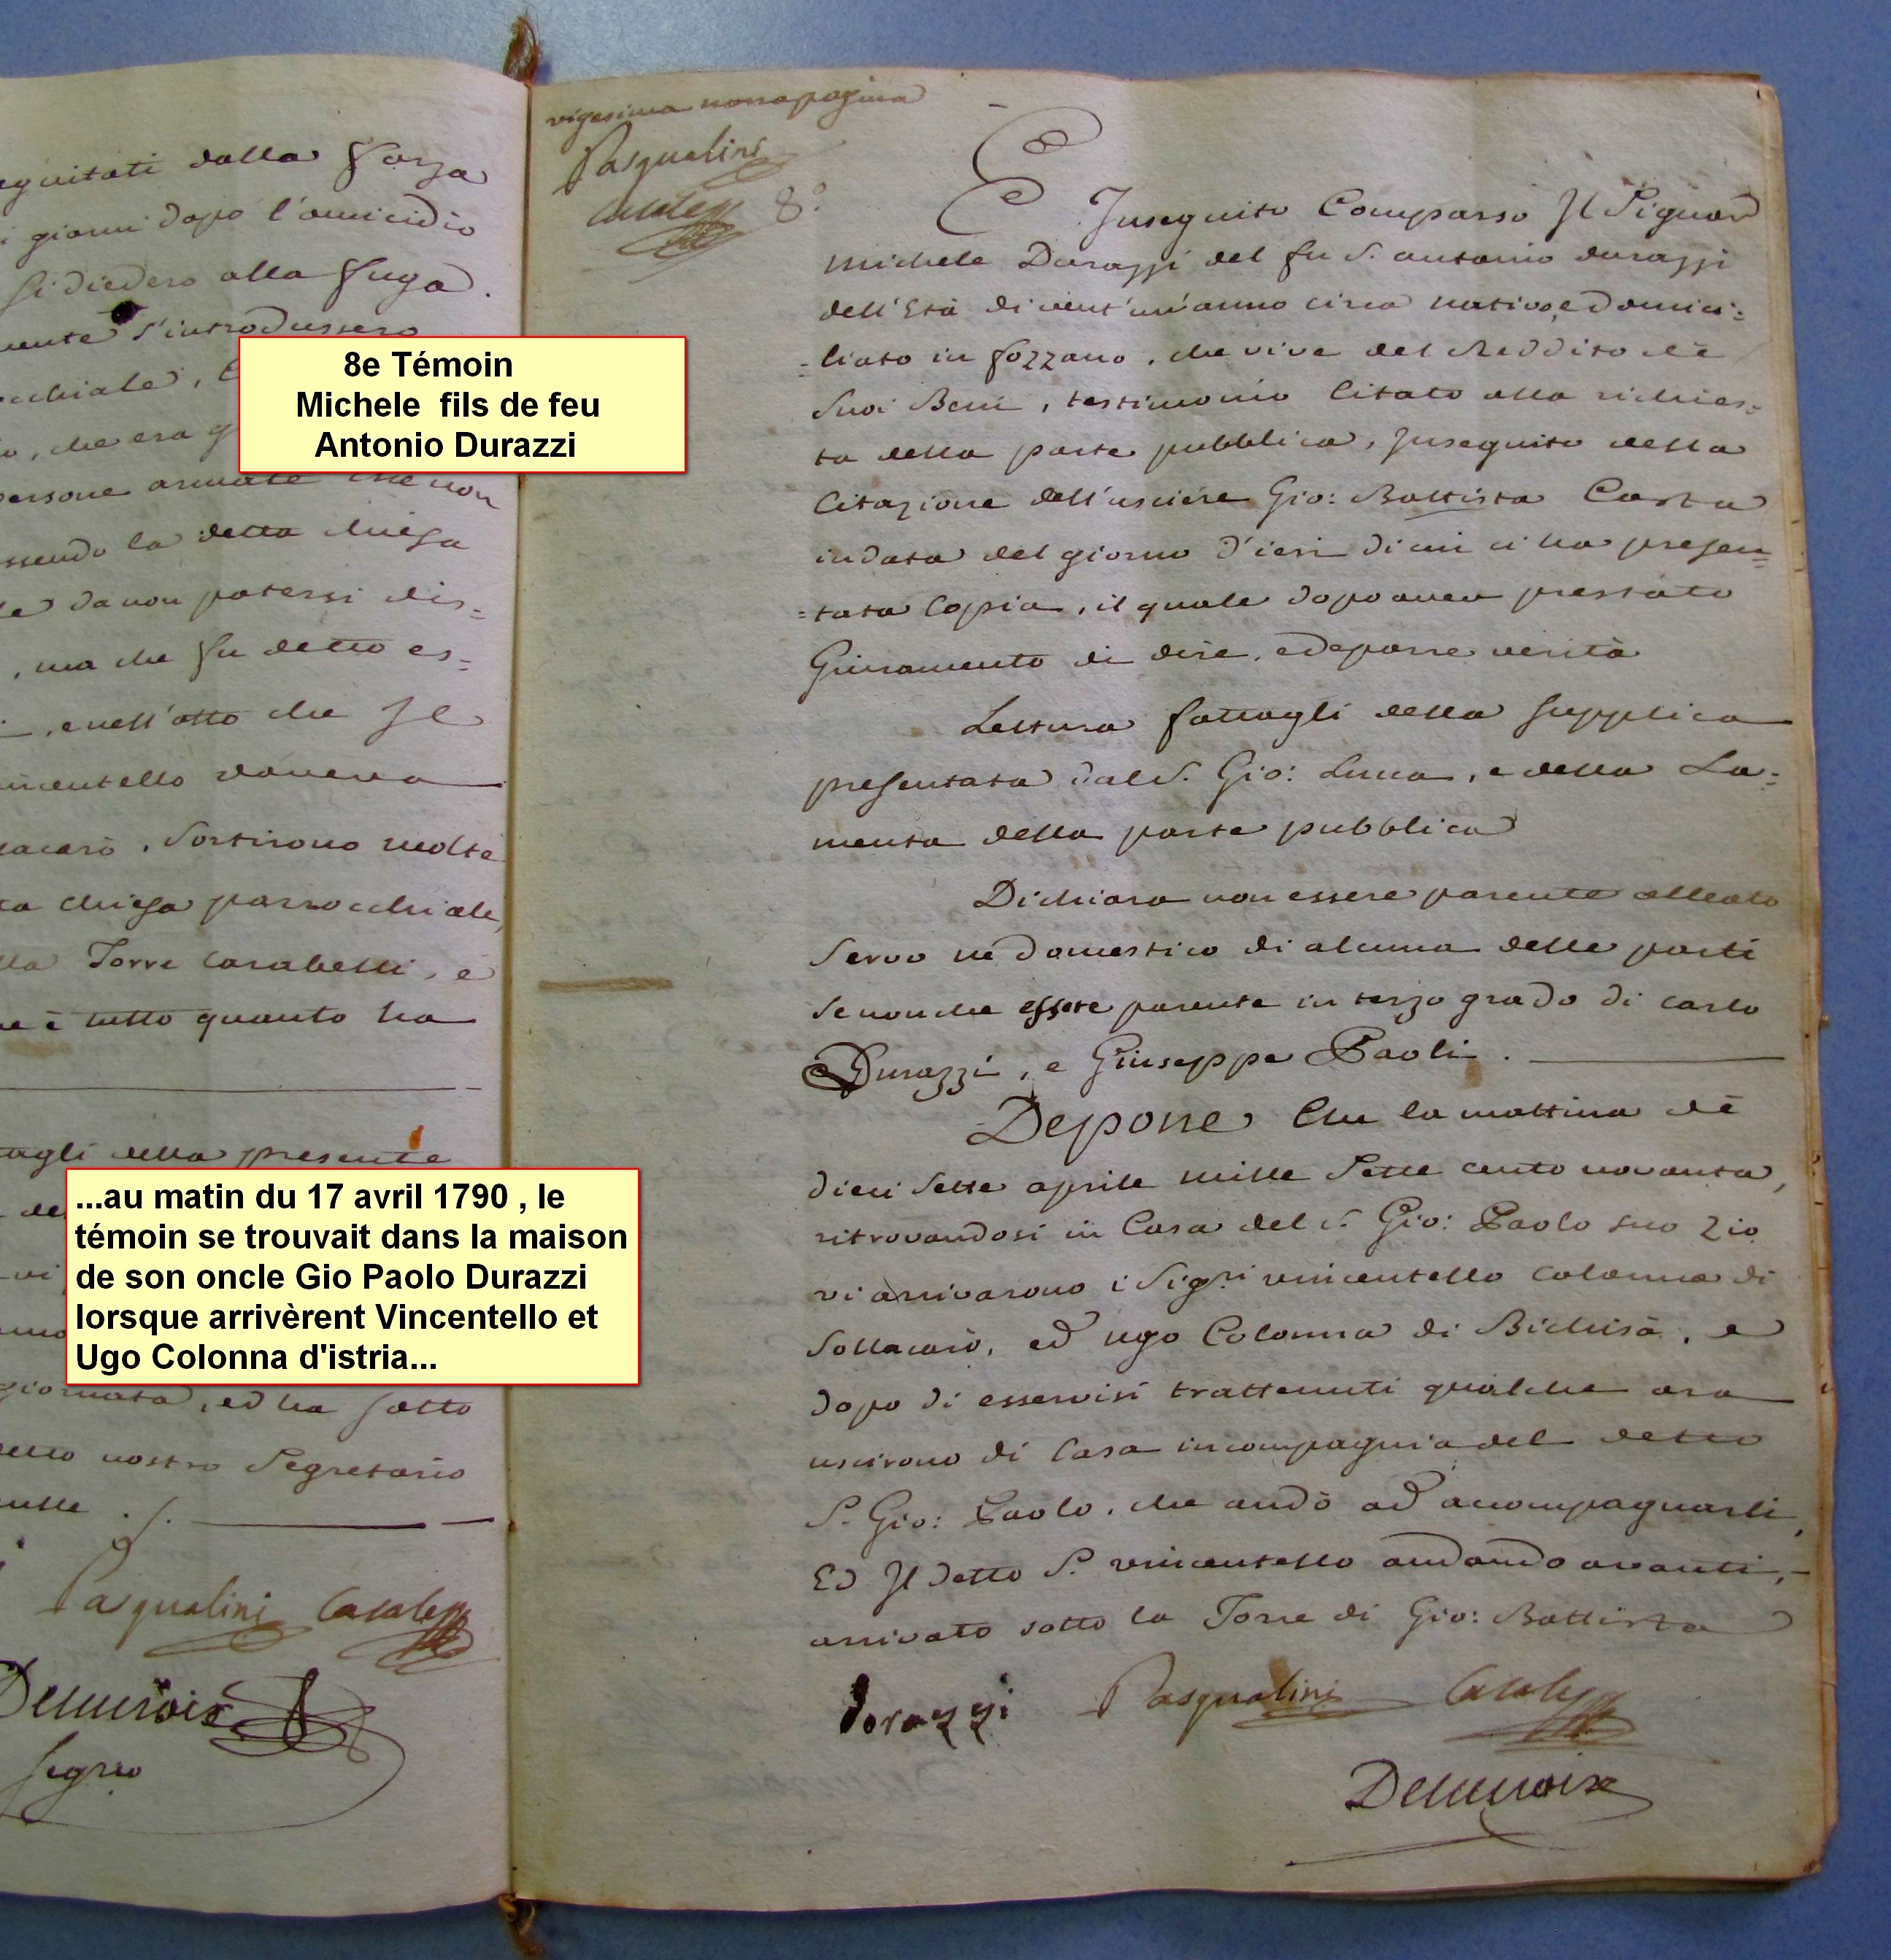 eguitati dalla forza
i giorni dopo l'omicidio
si diedero alla fuga.
mente s'introdussero
cchiale,
o, che era g
persone armate che non
ssendo la detta chiesa
le da non potersi dis=
, ma che fu detto es=
, e nell'atto che Il
incentello veneva
lacarò, sortirono molte
ta chiesa parrocchiale,
lla Torre Carabelli, e
ue è tutto quanto ha
tagli della presente
de
vi
giornata, ed ha sotto
detto nostro Segretario
nulle ./.
Pasqualini Casale
Delacroix
Segrio
8e Témoin
Michele fils de feu
Antonio Durazzi
...au matin du 17 avril 1790 , le
témoin se trouvait dans la maison
de son oncle Gio Paolo Durazzi
lorsque arrivèrent Vincentello et
Ugo Colonna d'istria...
vigesima nona pagina
Pasqualini
8.°
E Inseguito Comparso Il Signor
Michele Durazzi del fu S. antonio durazzi
dell'Età di vent'un'anno circa nativo, e domici=
=liato in fozzano, che vive del Reddito de
Suoi Beni, testimonio Citato alla richies=
ta della parte pubblica, Inseguito della
Citazione dell'usciere Gio: Battista Casta
in data del giorno d'ieri di cui ci ha presen=
=tata Copia, il quale dopo aver prestato
Giuramento di dire, e deporre verità
Lettura fattagli della supplica
presentata dal S. Gio: Luca, e della La=
menta della parte pubblica
Dichiara non essere parente alleato
Servo ne domestico di alcuna delle parti
Se non che essere parente in terzo grado di carlo
Durazzi, e Giuseppe Paoli.
Depone Che la mattina de
dieci Sette aprile mille Sette cento novanta,
ritrovandosi in Casa del S. Gio: Paolo suo Zio
vi arrivarono i Sig.ri vincentello colonna di
Sollacarò, ed ugo Colonna di Bichisà, e
dopo di esservisi trattenuti qualche ora
uscirono di Casa in compagnia del detto
S. Gio: Paolo, che andò ad accompagnarli,
Ed Il detto S. vincentello andando avanti,
arrivato sotto la Torre di Gio: Battista
dorazzi Pasqualini Casale
Delacroix